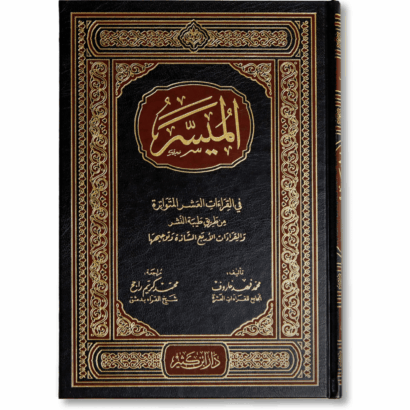 الميسر
في القراءات العشر المتواترة
من طريق طيبة النشر
والقراءات الأربع الشاذة وتوجيهها
تأليف
محمد فهد خاروف
الجامع للقراءات العشرة
مراجعة
محمد كريم راجح
شيخ القراء بدمشق
دار ابن كثير